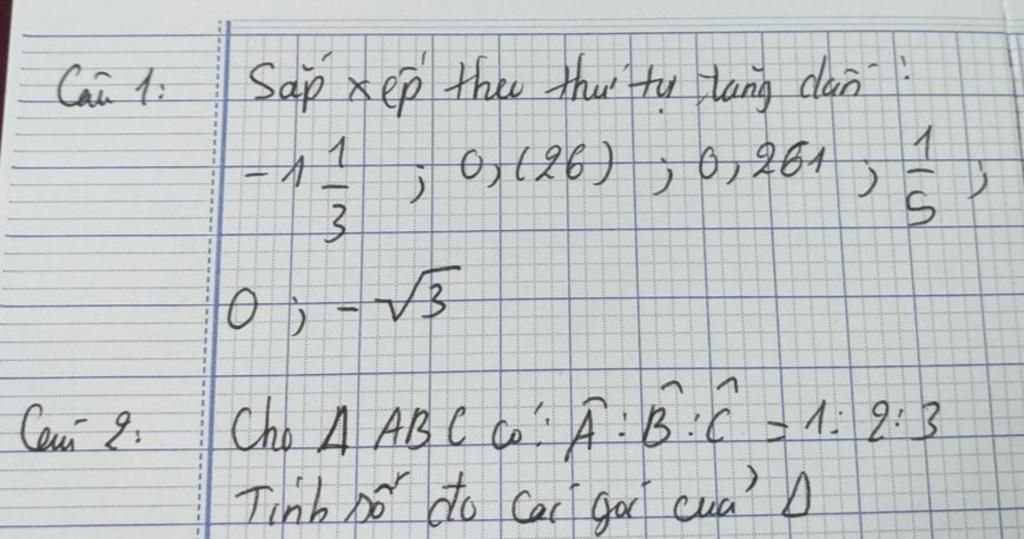 Câu 1: Sắp xếp theo thứ tự tăng dần:
-1 1/3 ; 0,(26) ; 0,261 ; 1/5 ;
0 ; -√3
Câu 2: Cho Δ ABC có: Â : B̂ : Ĉ = 1: 2: 3
Tính số đo các góc của Δ